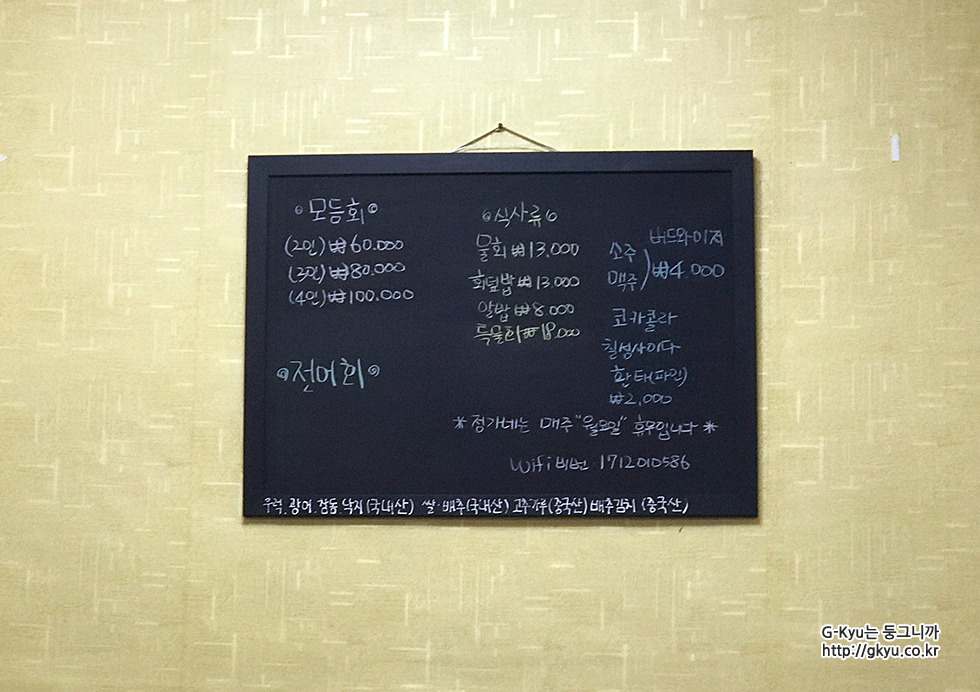 모듬회
(2인) ₩60.000
(3인) ₩80.000
(4인) ₩100.000
전어회
식사류
물회 ₩13.000
회덮밥 ₩13.000
알밥 ₩8.000
특물회 ₩18.000
버드와이저
소주
맥주 ) ₩4.000
코카콜라
칠성사이다
환타(파인)
₩2.000
* 정가네는 매주 "월요일" 휴무입니다 *
Wifi 비번 1712010586
우럭. 광어. 참돔. 낙지(국내산) 쌀·배추(국내산) 고추가루(중국산) 배추김치 (중국산)
G-Kyu는 둥그니까
http://gkyu.co.kr